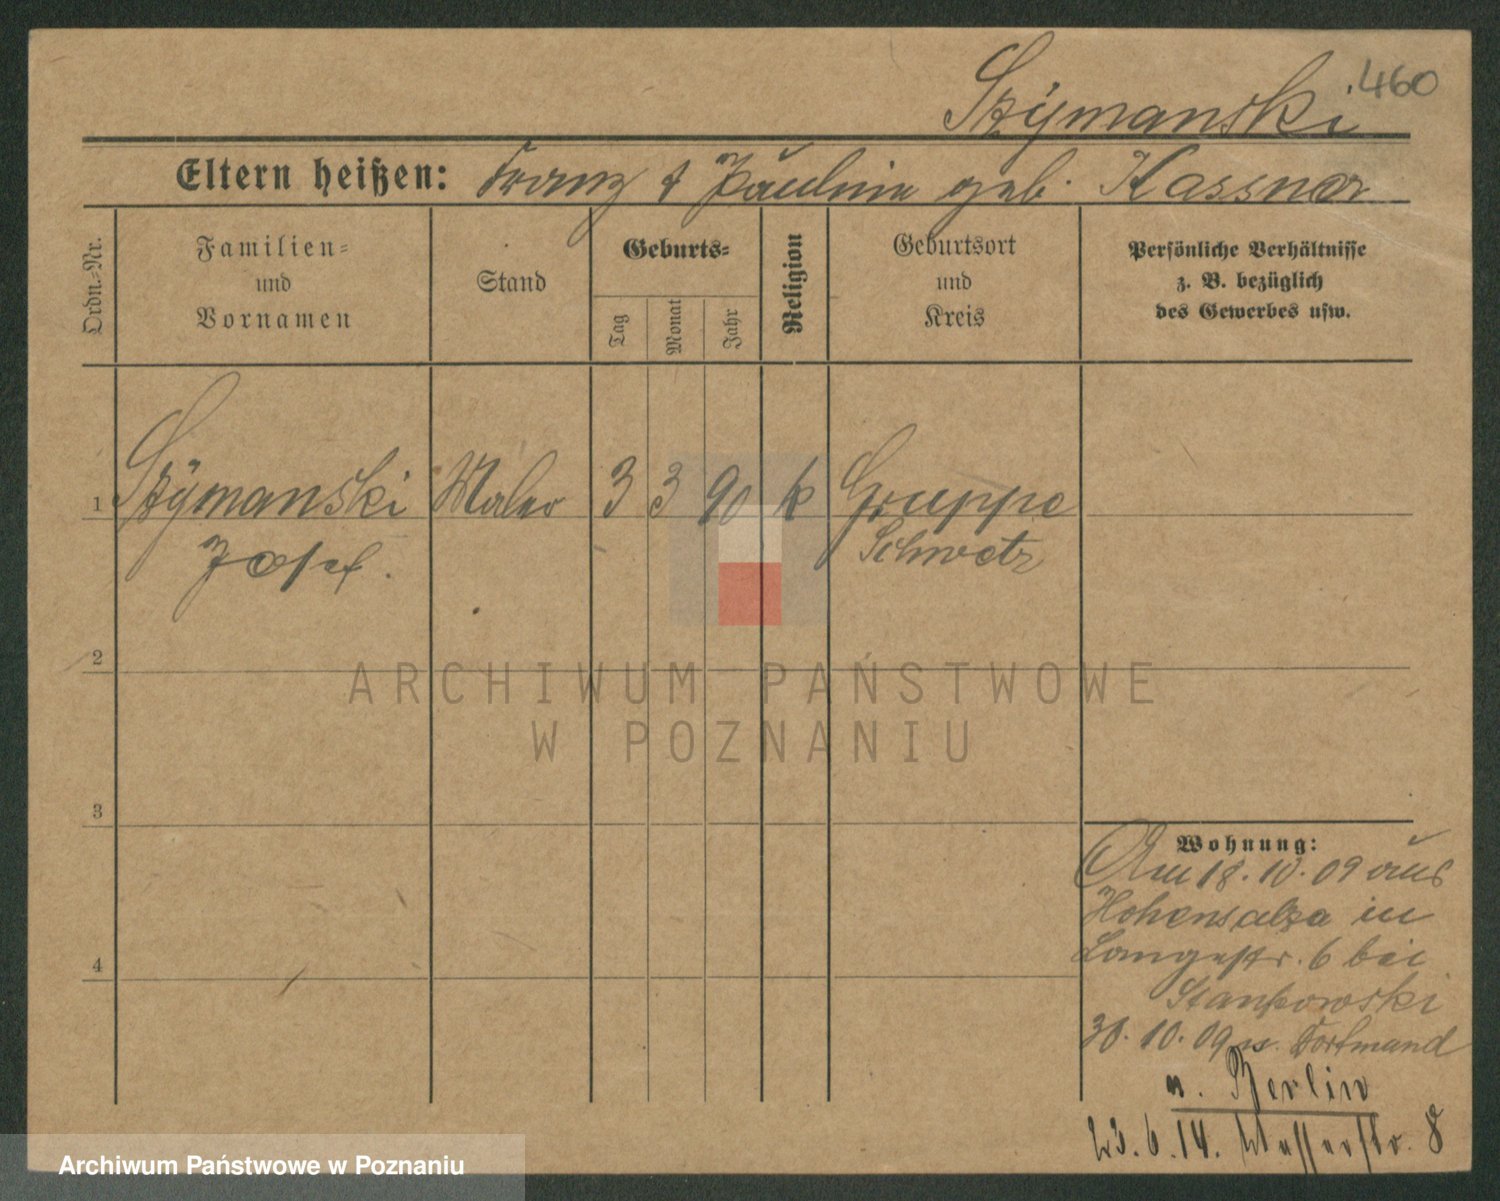 460
Szÿmanski
Eltern heißen: Franz & Paulina geb. Kassner
Ordn.-Nr.
Familien-
und
Vornamen
Stand
Geburts-
Tag
Monat
Jahr
Religion
Geburtsort
und
Kreis
Persönliche Verhältnisse
z. B. bezüglich
des Gewerbes usw.
1 Szÿmanski Maler 3 3 90 k Gruppe
Josef. Schwetz
2
3
4
Wohnung:
Am 18.10.09 aus
Hohensalza in
Langestr. 6 bei
Stankowski
30.10.09 n. Dortmund
n. Berlin
23.6.14. Wasserstr. 8
ARCHIWUM PAŃSTWOWE
W POZNANIU
Archiwum Państwowe w Poznaniu